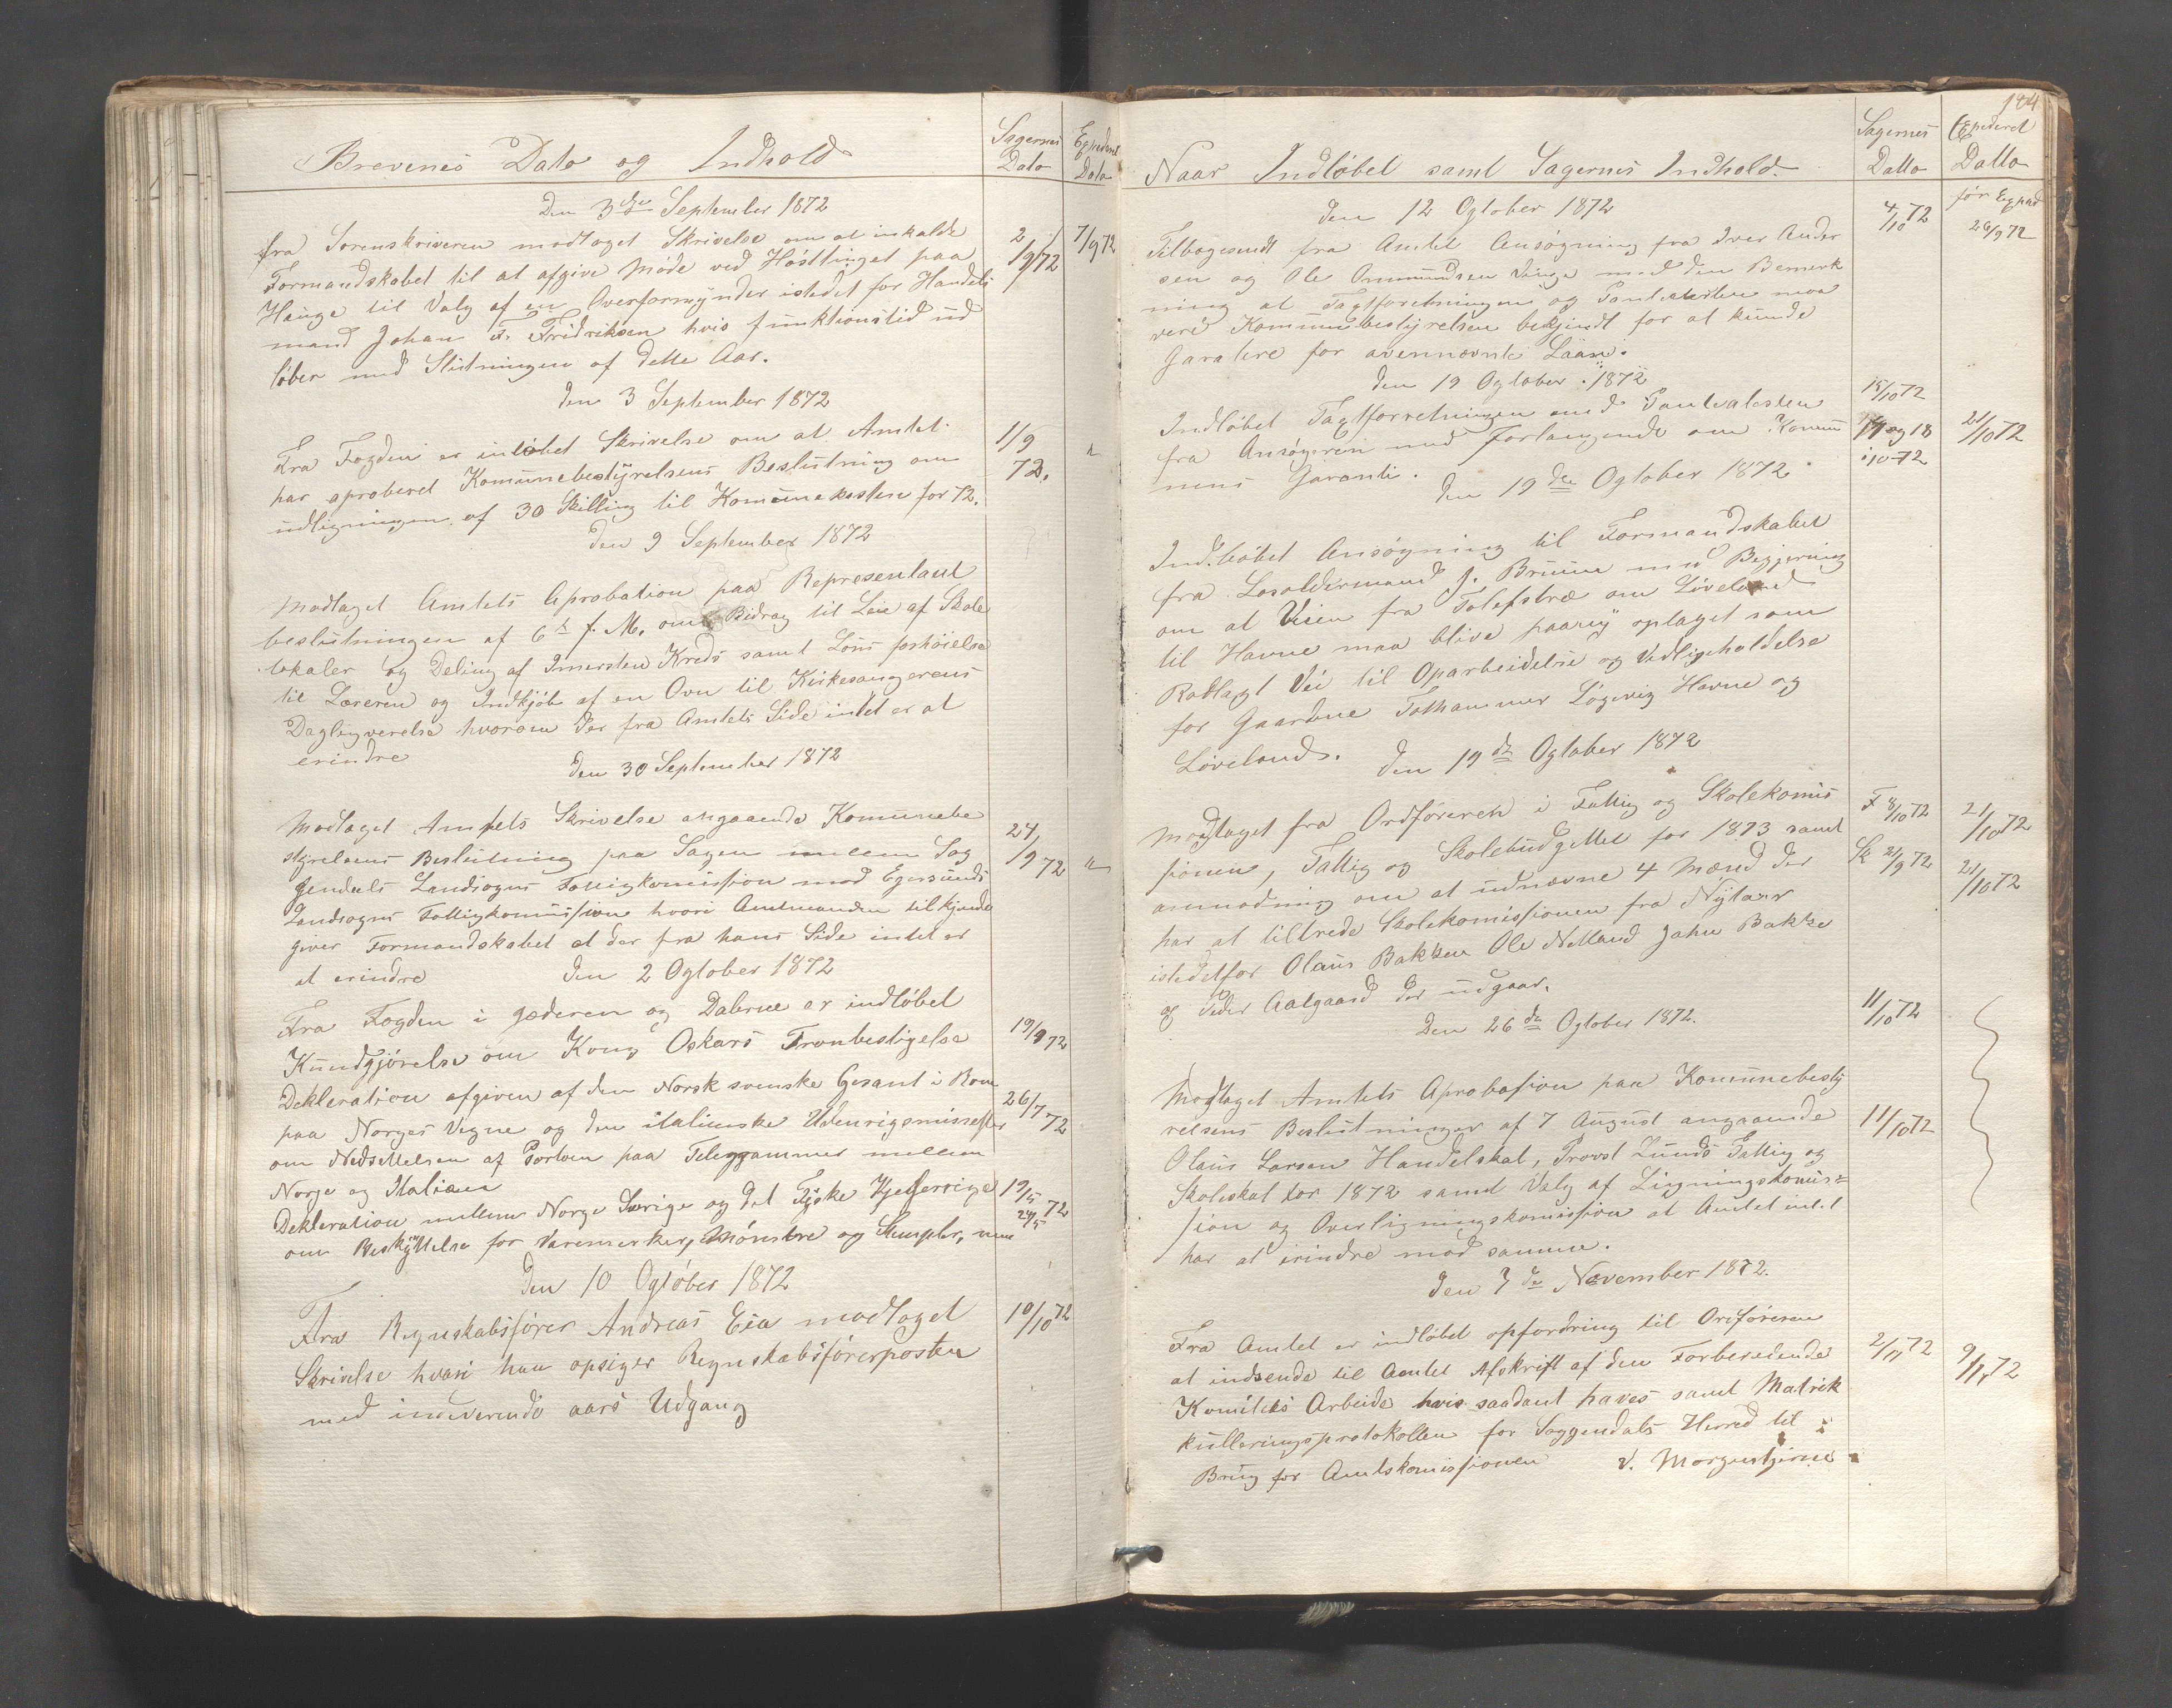 Brevenes Dato og Indhold
Sagernes Dato
Expederet Dato
Den 3die September 1872
fra Sorenskriveren modtaget Skrivelse om at inkalde
Formandskabet til at afgive Møde ved Høsttinget paa
Hauge til Valg af en Overformynder istedet for Handels
mand Johan F. Fridriksen hvis funktionstid ud
løber med Slutningen af dette Aar.
2/9 72
7/9 72
Den 3 September 1872
Fra Fogden er inløbet Skrivelse om at Amtet
har aproberet Komunebestyrelsens Beslutning om
udligningen af 30 Skilling til Komunekassen for 72.
1/9 72.
Den 9 September 1872
Modtaget Amtets Aprobation paa Representant
beslutningen af 6te f. M. om Bidrag til Leie af Skole
lokaler og Deling af Kreds samt Løns forhøielse
til Læreren og Indkjøb af en Ovn til Kirkesangerens
Dagligverelse hvorom der fra Amtets Side intet er at
erindre
Den 30 September 1872
Modtaget Amtets Skrivelse angaaende Komunebe
styrelsens Beslutning paa Sagen mellem Sog
gendals Landsogns Fattigkomission mod Egersunds
Landsogns Fattigkomission hvori Amtmanden tilkjende
giver Formandskabet at der fra hans Side intet er
at erindre
24/9 72
Den 2 Ogtober 1872
Fra Fogden i Jæderen og Dalerne er indløbet
Kundgjørelse om Kong Oskars Tronbestigelse
19/9 72
Dekleration afgiven af den Norsk svenske Gesant i Rom
paa Norges Vegne og den italienske Udenrigsminister
om Nedsettelsen af Portoen paa Telegrammer mellem
Norge og Italien
26/7 72
Dekleration mellem Norge Sverige og det Tyske
om Beskyttelse for Varemerker, Mønstre og Stempler,
19/5 72
24/5
Den 10 Ogtober 1872
Fra Regnskabsfører Andreas Eia modtaget
Skrivelse hvori han opsiger Regnskabsførerposten
med indeverende aars Udgang
10/10 72
184
Naar Indløbet samt Sagernes Indhold
Sagernes Datto
Expederet Datto
Den 12 Ogtober 1872
4/10 72
før Exped
26/9 72
Tilbagesendt fra Amtet Ansøgning fra Iver Ander
sen og Ole Ommundsen Vinge med den Bemerk
ning at Tagtforetningen og Panteatesten maa
vere Kommunebestyrelsen bekjendt for at kunde
Garatere for avennevnte Laan.
Den 19 Ogtober 1872
Indløbet Tagtforretningen med Panteatesten
fra Ansøgeren med forlangende om Komu
nens Garanti.
15/10 72
17 og 18
10 72
21/10 72
Den 19de Ogtober 1872
Indløbet Ansøgning til Formandskabet
fra Losoldermand J. Bruun med Begjering
om at Veien fra om Løveland
til Havne maa blive paany optaget som
Rodlagt Vei til Oparbeidelse og Vedligeholdelse
for Gaardene Løgevig Havne og
Løveland.
Den 19de Ogtober 1872
Modtaget fra Ordføreren i Fattig og Skolekomis
sionen, Fattig og Skolebudgettet for 1873 samt
anmodning om at udnævne 4 Mænd der
har at tiltrede Skolekomissionen fra Nytaar
istedetfor Olaus Bakken Ole Netland Jahn Bakke
og Peder Aalgaard der udgaar.
F 8/10 72
21/10 72
Sk 2/9 72
21/10 72
Den 26de Ogtober 1872.
11/10 72
Modtaget Amtets Aprobasion paa Komunebesty
relsens Beslutninger af 7 August angaaende
Olaus Larsen Handelskat, Provst Lunds Fattig og
Skoleskat for 1872 samt Valg af Ligningskomis=
sion og Overligningskomission at Amtet intet
har at erindre mod samme.
11/10 72
Den 7de November 1872.
Fra Amtet er indløbet opfordring til Orføreren
at indsende til Amtet Afskrift af den Forberedende
Komitees Arbeide hvis saadant haves samt Matrik
kulleringsprotokollen for Soggendals Herred til
Brug for Amtskomissionen v. Morgenstjerne
2/11 72
9/11 72